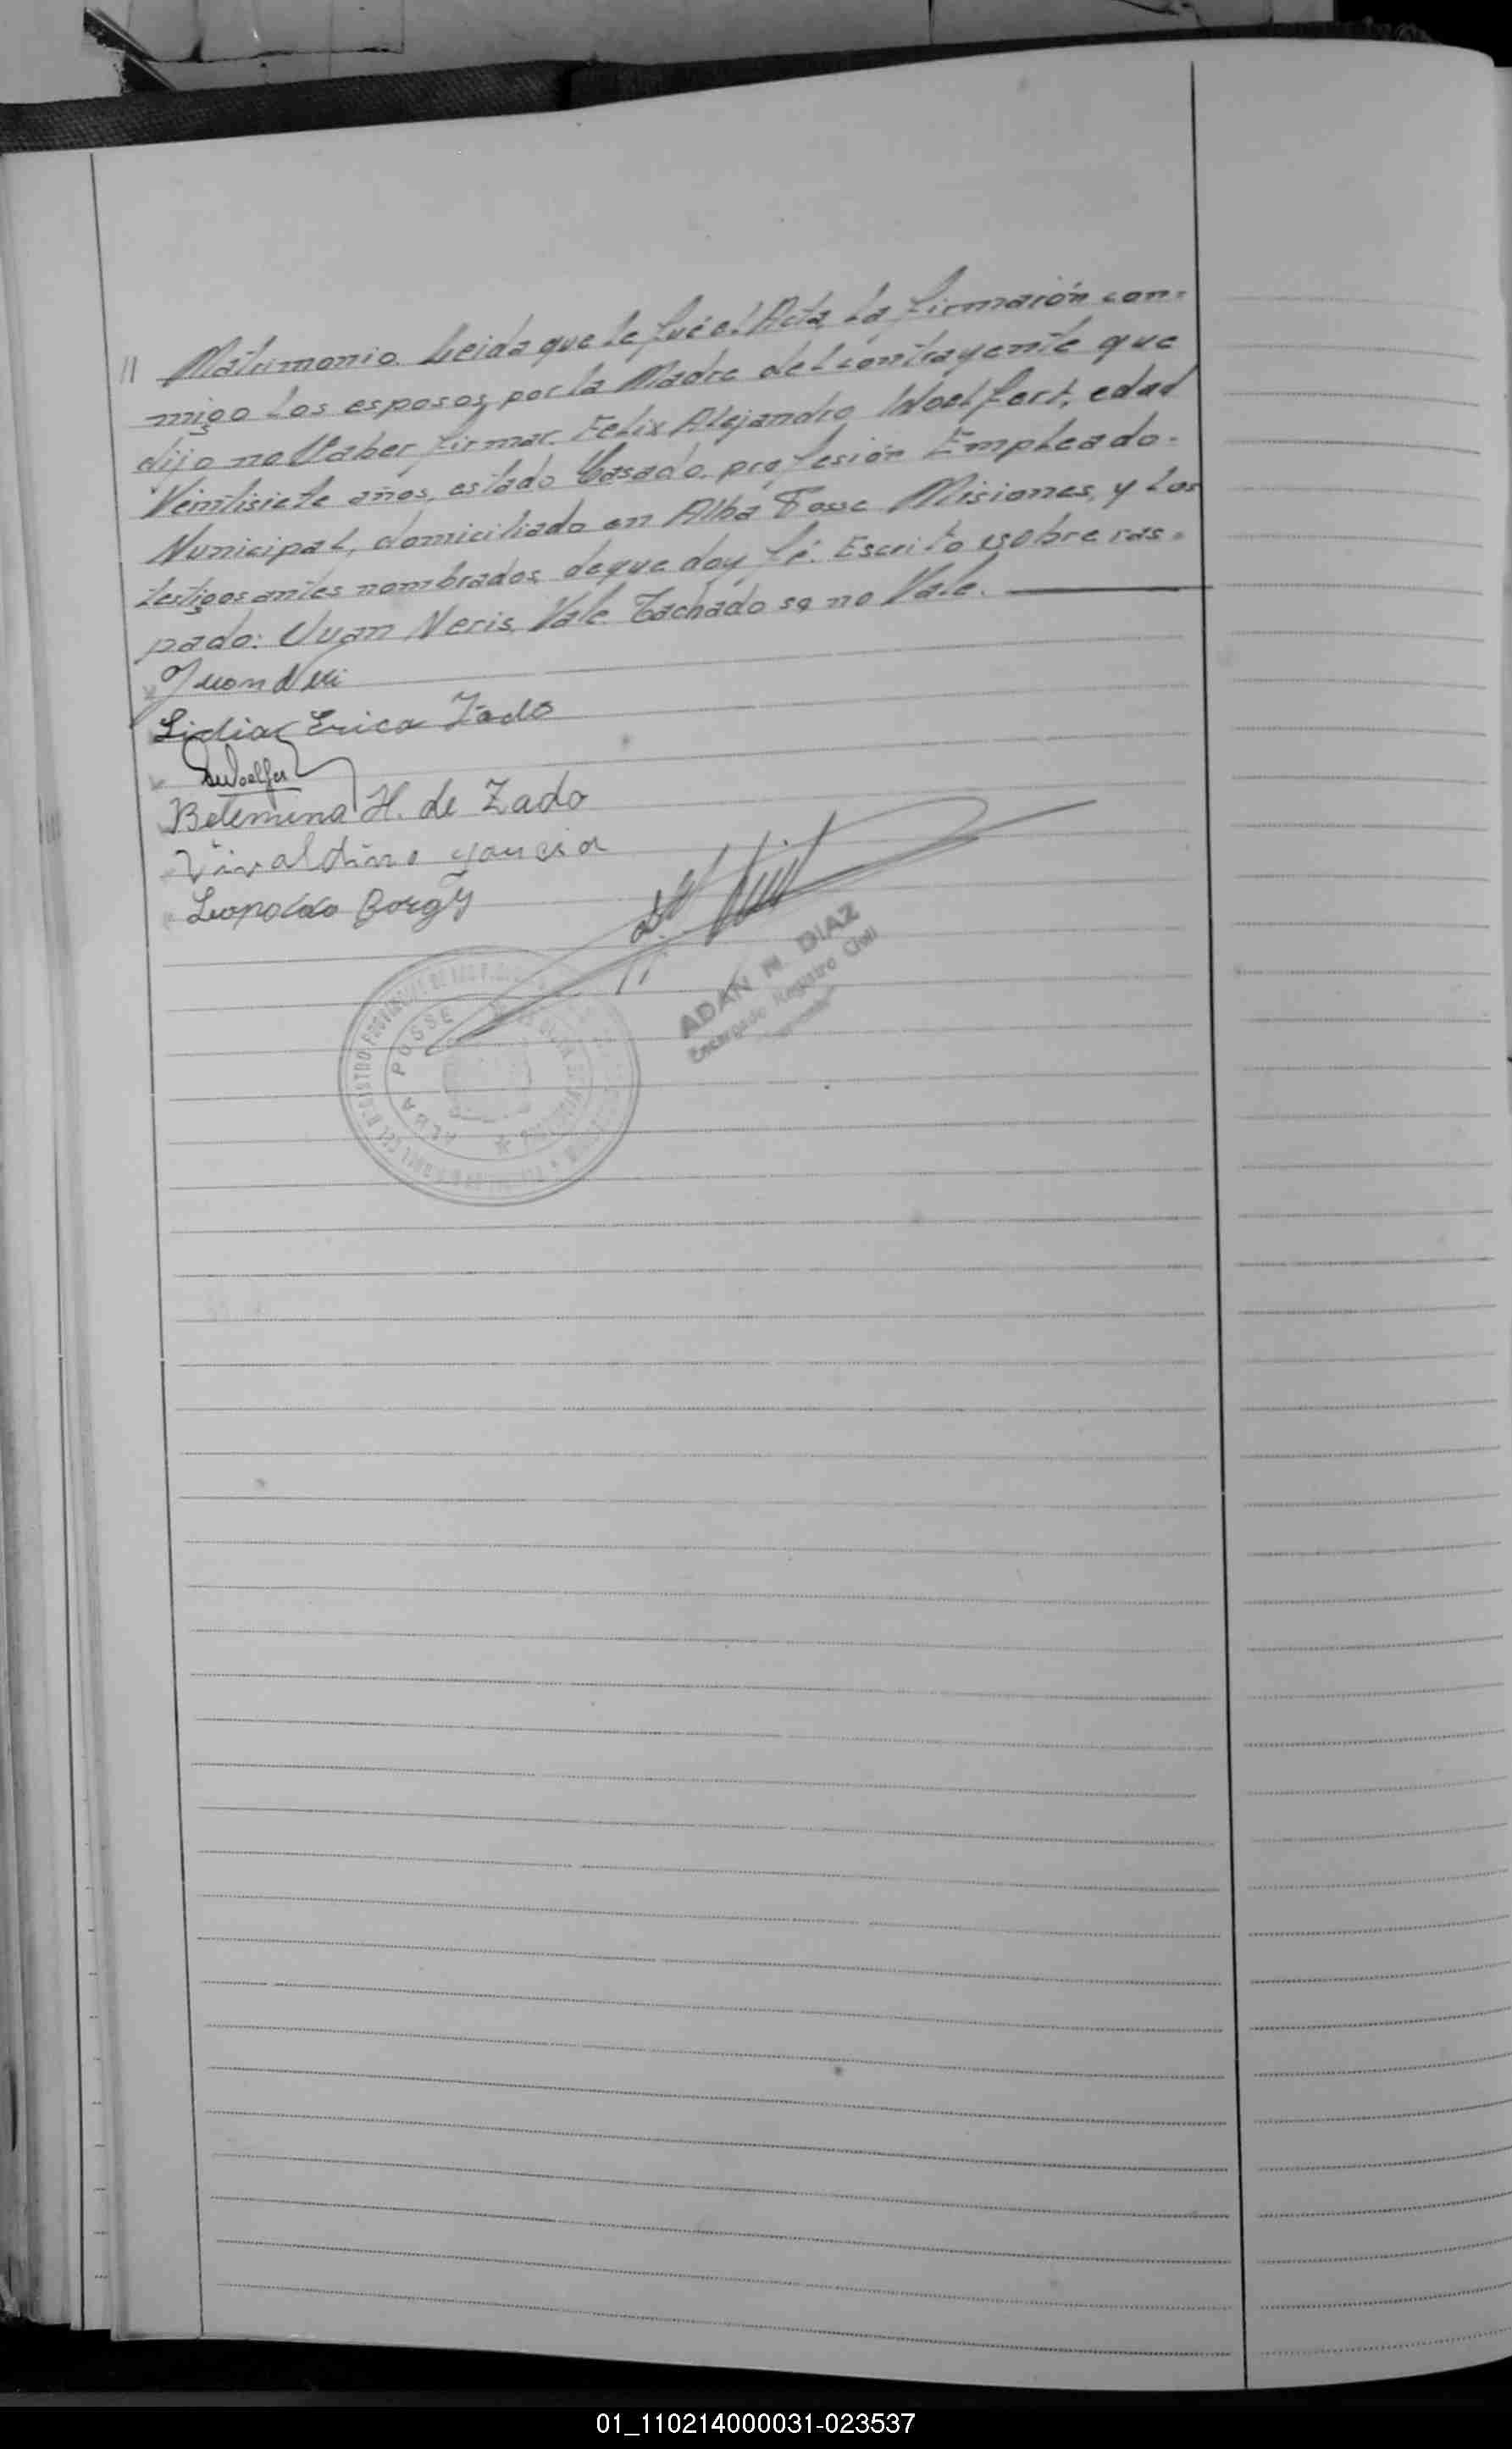 // Matrimonio. Leida que le fué el Acta, La firmarón con-
migo Los esposos, por la Madre del contrayente que
dijo no Saber firmar. Felix Alejandro Woelfert, edad
Veintisiete años, estado Casado, profesión Empleado-
Municipal, domiciliado en Alba Posse Misiones, y Los
testigos antes nombrados, de que doy fé. Escrito sobre ras-
pado: Juan Neris, Vale. Tachado se no Vale.
Juan Neri
Lidia Erica Zado
Belemina H. de Zado
Vivaldino
Leopoldo Borgy
ADAN N. DIAZ
Encargado Registro Civil
ALBA POSSE
01_110214000031-023537